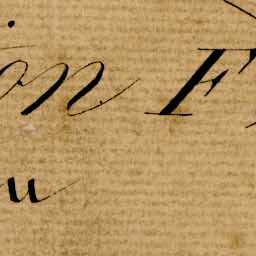 on F
u